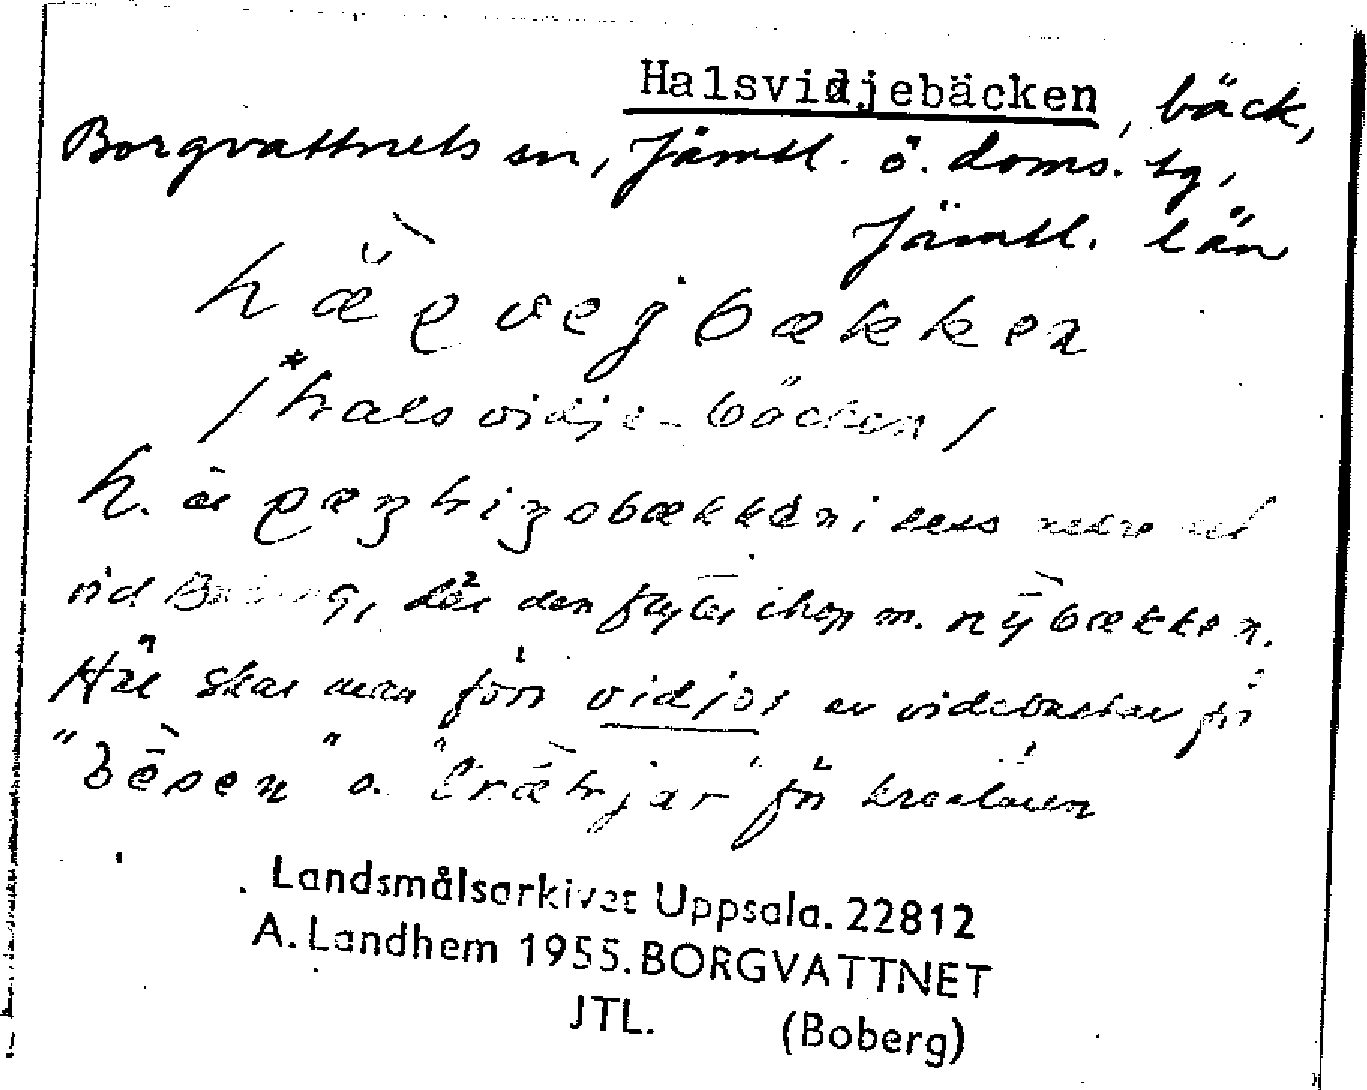 Halsvidjebäcken, bäck,
Borgvattnets sn, Jämtl. ö. doms. tg,
Jämtl. län
hæ̀ɽvejbækken
/*hals vidje-bäcken/
h. är i dess nedre del
vid där den flyter ihop m. nȳ̀bækken.
Här skar man förr vidjor av videbuskar för
"bèsen" o. för kreaturen
Landsmålsarkivet Uppsala. 22812
A. Landhem 1955. BORGVATTNET
JTL. (Boberg)